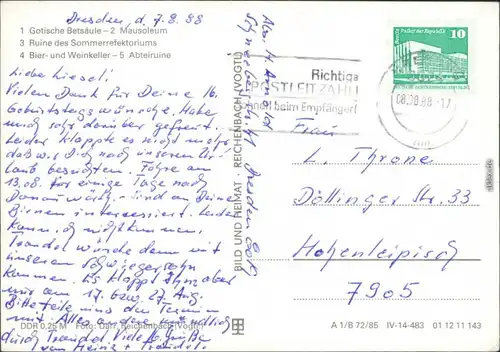 Dresden d. 7.8.88
1 Gotische Betsäule – 2 Mausoleum
3 Ruine des Sommerrefektoriums
4 Bier- und Weinkeller – 5 Abteiruine
Liebe Liesel!
Vielen Dank für Deine lb.
Geburtstagswünsche. Habe
mich sehr darüber gefreut.
Leider klappte es nicht mehr
daß wir Dich nach unserem Ur-
laub besuchten. Fahre am
13.08. für einige Tage nach
Donauwörth. sind an Deine
Birnen interessiert. Leider
kann ich nicht kommen,
Traudel würde dann mit
unserem Schwiegersohn
kommen. Es klappt aber
nur am 17. bzw. 27. Aug.
Bitte teile uns den Termin
mit. Alles andere mündlich
durch Traudel. Viele lb. Grüße
von Heinz + Traudel
DDR 0,25 M Foto: Darr, Reichenbach (Vogtl)
BILD UND HEIMAT REICHENBACH (VOGTL)
Dresden 8041
Richtige
POSTLEITZAHL
schnell beim Empfänger!
08.-8.88-17
10
Palast der Republik
Frau
L. Throne
Döllinger Str. 33
Hohenleipisch
7905
A 1/B 72/85 IV-14-483 01 12 11 143